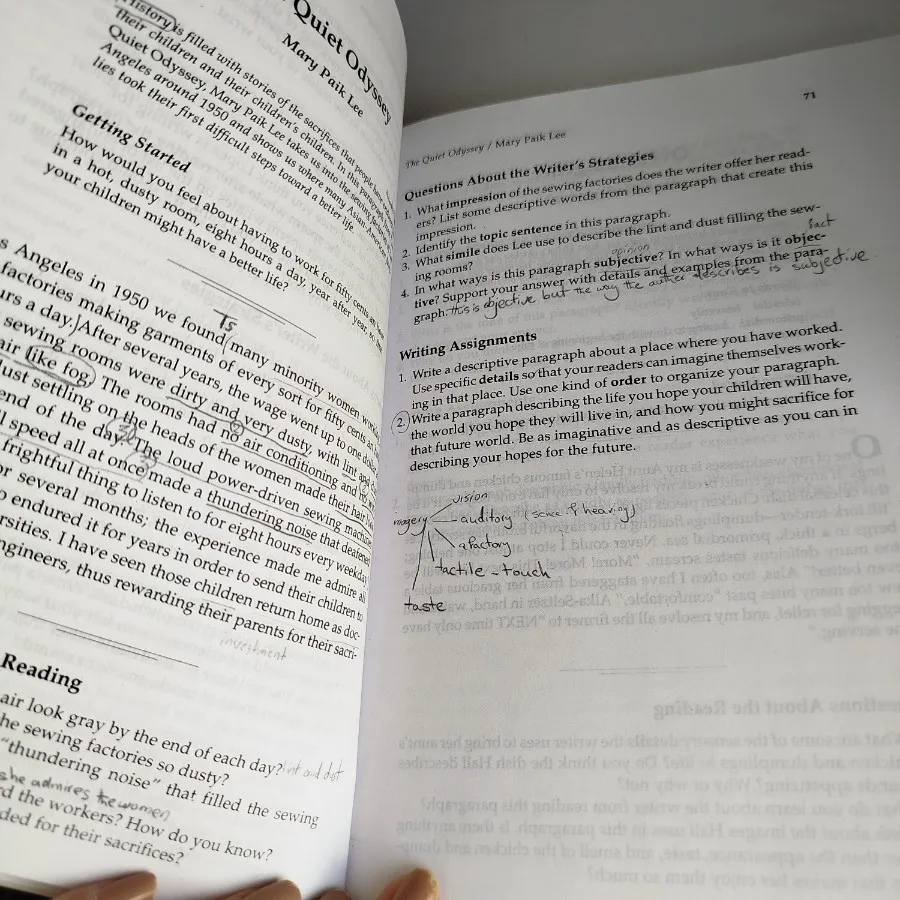 Quiet Odyssey
Mary Paik Lee
History is filled with stories of the sacrifices that people
their children and their children's children. In this paragraph
Quiet Odyssey, Mary Paik Lee takes us into the sewing
Angeles around 1950 and shows us where many Asian-American
lies took their first difficult steps toward a better life.
Getting Started
How would you feel about having to work for fifty cents an
in a hot, dusty room, eight hours a day, year after year, so
your children might have a better life?
Ts
s Angeles in 1950 we found many minority women
factories making garments of every sort for fifty cents an
urs a day. After several years, the wage went up to one dollar
sewing rooms were dirty and very dusty, with lint and
air like fog. The rooms had no air conditioning, and the
dust settling on the heads of the women made their hair
end of the day. The loud power-driven sewing machines
l speed all at once made a thundering noise that deafened
frightful thing to listen to for eight hours every weekday
or several months; the experience made me admire all
o endured it for years in order to send their children to
ersities. I have seen those children return home as doc-
ngineers, thus rewarding their parents for their sacri-
investment
Reading
air look gray by the end of each day? lint and dust
he sewing factories so dusty?
"thundering noise" that filled the sewing
she admires the women
d the workers? How do you know?
ded for their sacrifices?
71
The Quiet Odyssey / Mary Paik Lee
Questions About the Writer's Strategies
1. What impression of the sewing factories does the writer offer her read-
ers? List some descriptive words from the paragraph that create this
impression.
2. Identify the topic sentence in this paragraph.
3. What simile does Lee use to describe the lint and dust filling the sew-
ing rooms?
opinion fact
4. In what ways is this paragraph subjective? In what ways is it objec-
tive? Support your answer with details and examples from the para-
graph. this is objective but the way the auther describes is subjective
Writing Assignments
1. Write a descriptive paragraph about a place where you have worked.
Use specific details so that your readers can imagine themselves work-
ing in that place. Use one kind of order to organize your paragraph.
2. Write a paragraph describing the life you hope your children will have,
the world you hope they will live in, and how you might sacrifice for
that future world. Be as imaginative and as descriptive as you can in
describing your hopes for the future.
vision
imagery auditory (sence of hearing)
afactory
tactile - touch
taste